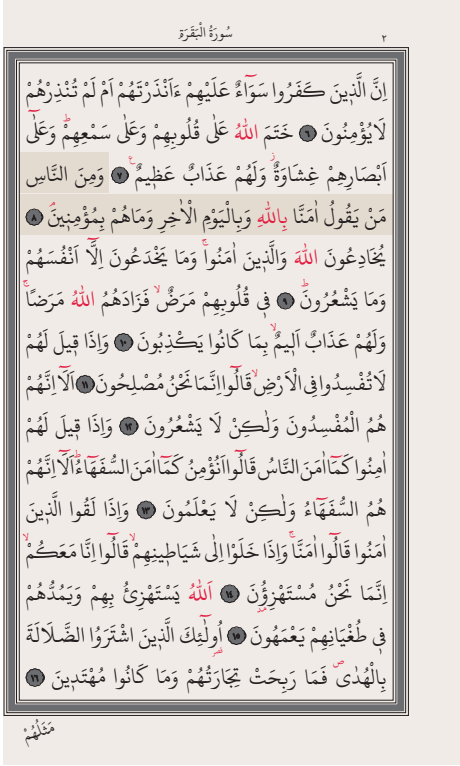 سُورَةُ الْبَقَرَةِ ٢
اِنَّ الَّذ۪ينَ كَفَرُوا سَوَٓاءٌ عَلَيْهِمْ ءَاَنْذَرْتَهُمْ اَمْ لَمْ تُنْذِرْهُمْ
لَايُؤْمِنُونَ ٦ خَتَمَ اللّٰهُ عَلٰى قُلُوبِهِمْ وَعَلٰى سَمْعِهِمْۜ وَعَلٰٓى
اَبْصَارِهِمْ غِشَاوَةٌۘ وَلَهُمْ عَذَابٌ عَظ۪يمٌ۟ ٧ وَمِنَ النَّاسِ
مَنْ يَقُولُ اٰمَنَّا بِاللّٰهِ وَبِالْيَوْمِ الْاٰخِرِ وَمَاهُمْ بِمُؤْمِن۪ينَۢ ٨
يُخَادِعُونَ اللّٰهَ وَالَّذ۪ينَ اٰمَنُواۚ وَمَا يَخْدَعُونَ اِلَّٓا اَنْفُسَهُمْ
وَمَا يَشْعُرُونَۜ ٩ ف۪ي قُلُوبِهِمْ مَرَضٌۙ فَزَادَهُمُ اللّٰهُ مَرَضًاۚ
وَلَهُمْ عَذَابٌ اَل۪يمٌۙ بِمَا كَانُوا يَكْذِبُونَ ١٠ وَاِذَا ق۪يلَ لَهُمْ
لَاتُفْسِدُوا فِي الْاَرْضِۙ قَالُٓوا اِنَّمَا نَحْنُ مُصْلِحُونَ ١١ اَلَٓا اِنَّهُمْ
هُمُ الْمُفْسِدُونَ وَلٰكِنْ لَا يَشْعُرُونَ ١٢ وَاِذَا ق۪يلَ لَهُمْ
اٰمِنُوا كَمَٓا اٰمَنَ النَّاسُ قَالُٓوا اَنُؤْمِنُ كَمَٓا اٰمَنَ السُّفَهَٓاءُۜ اَلَٓا اِنَّهُمْ
هُمُ السُّفَهَٓاءُ وَلٰكِنْ لَا يَعْلَمُونَ ١٣ وَاِذَا لَقُوا الَّذ۪ينَ
اٰمَنُوا قَالُٓوا اٰمَنَّاۚ وَاِذَا خَلَوْا اِلٰى شَيَاط۪ينِهِمْۙ قَالُٓوا اِنَّا مَعَكُمْۙ
اِنَّمَا نَحْنُ مُسْتَهْزِؤُ۫نَ ١٤ اَللّٰهُ يَسْتَهْزِئُ بِهِمْ وَيَمُدُّهُمْ
ف۪ي طُغْيَانِهِمْ يَعْمَهُونَ ١٥ اُو۬لٰٓئِكَ الَّذ۪ينَ اشْتَرَوُا الضَّلَالَةَ
بِالْهُدٰىۖ فَمَا رَبِحَتْ تِجَارَتُهُمْ وَمَا كَانُوا مُهْتَد۪ينَ ١٦
مَثَلُهُمْ